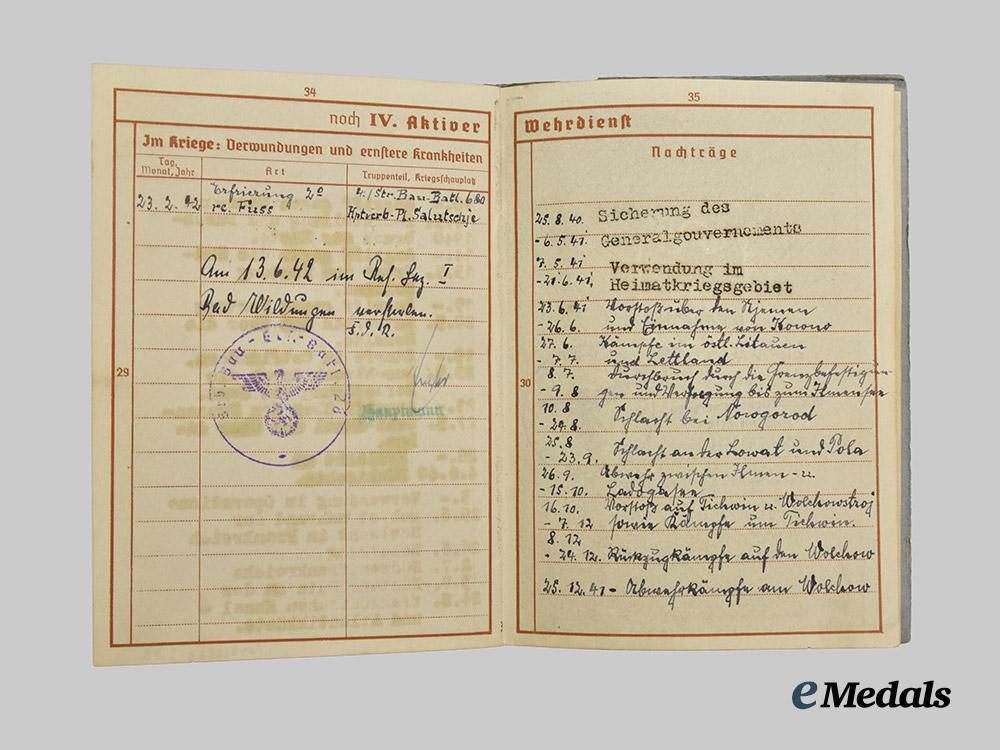 34
noch IV. Aktiver
Im Kriege: Verwundungen und ernstere Krankheiten
Tag, Monat, Jahr
Art
Truppenteil, Kriegsschauplatz
23. 2. 42
Erfrierung 2°
re. Fuss
4./Str. Bau-Batl. 680
Hptverb.-Pl. Salutschje
Am 13.6.42 im Res. Laz. I
Bad Wildungen verstorben.
F.d.R.
Hauptmann
29
35
Wehrdienst
Nachträge
30
25.8.40. Sicherung des
-6.5.41. Generalgouvernements
7.5.41 Verwendung im
-21.6.41, Heimatkriegsgebiet
23.6.41 Vorstoß über den Njemen
-26.6. und Einnahme von Kowno
27.6. Kämpfe im östl. Litauen
-7.7. und Lettland
8.7. Durchbruch durch die Grenzbefestigun-
-9.8 gen und Verfolgung bis zum Ilmensee
10.8
-24.8. Schlacht bei Nowgorod
25.8
-23.9. Schlacht an der Lowat und Pola
26.9. Abwehr zwischen Ilmen- u.
-15.10. Ladogasee
16.10. Vorstoß auf Tichwin u. Wolchowstroj
-7.12 sowie Kämpfe um Tichwin.
8.12
-24.12. Rückzugkämpfe auf den Wolchow
25.12.41- Abwehrkämpfe am Wolchow
eMedals